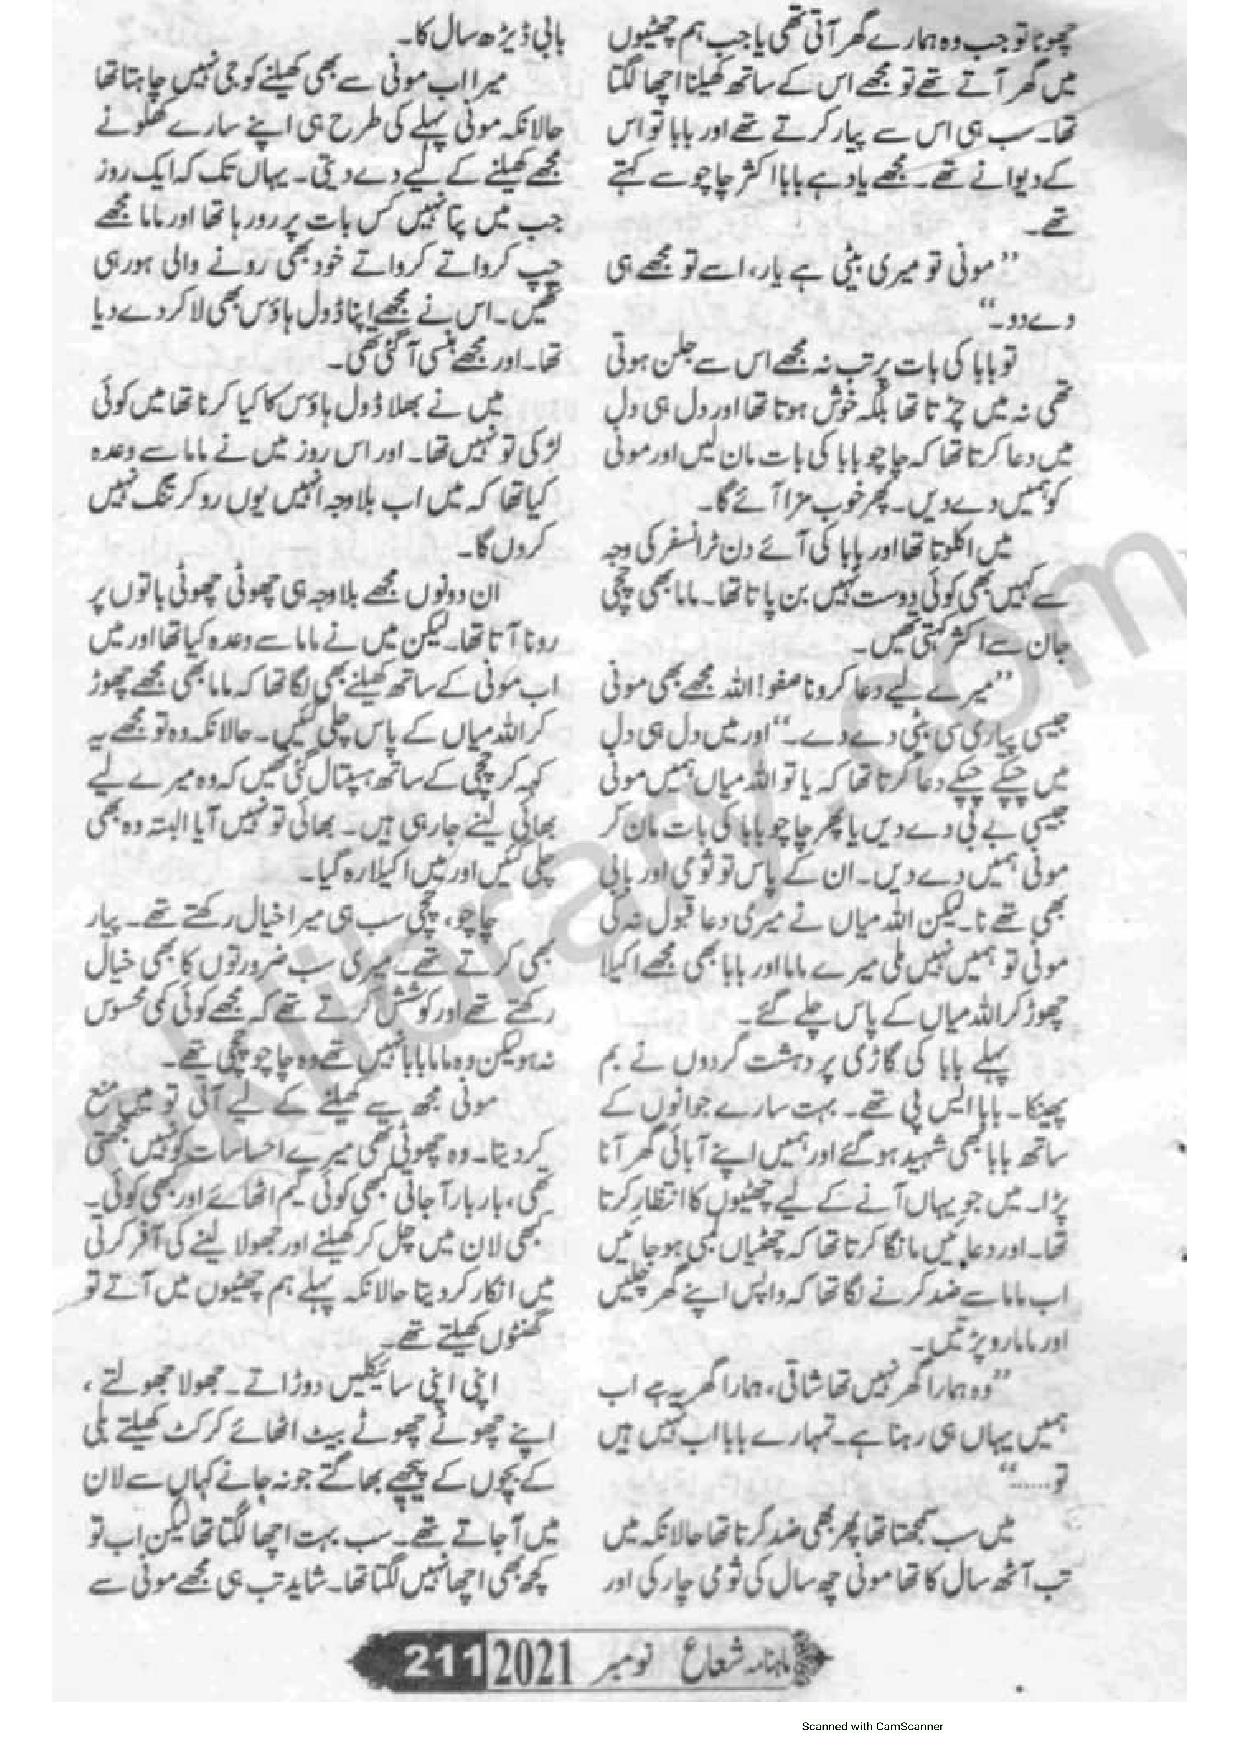 چھوٹا تو جب وہ ہمارے گھر آتی تھی یا جب ہم چھٹیوں
میں گھر آتے تھے تو مجھے اس کے ساتھ کھیلنا اچھا لگتا
تھا۔ سب ہی اس سے پیار کرتے تھے اور بابا تو اس
کے دیوانے تھے۔ مجھے یاد ہے بابا اکثر چاچو سے کہتے
تھے۔
”مونی تو میری بیٹی ہے یار، اسے تو مجھے ہی
دے دو۔“
تو بابا کی بات پر تب نہ مجھے اس سے جلن ہوتی
تھی نہ میں چڑتا تھا بلکہ خوش ہوتا تھا اور دل ہی دل
میں دعا کرتا تھا کہ چاچو بابا کی بات مان لیں اور مونی
کو ہمیں دے دیں۔ پھر خوب مزا آئے گا۔
میں اکلوتا تھا اور بابا کی آئے دن ٹرانسفر کی وجہ
سے کہیں بھی کوئی دوست نہیں بن پاتا تھا۔ ماما بھی چچی
جان سے اکثر کہتی تھیں۔
”میرے لیے دعا کرو نا صفو! اللہ مجھے بھی مونی
جیسی پیاری سی بیٹی دے دے۔“ اور میں دل ہی دل
میں چپکے چپکے دعا کرتا تھا کہ یا تو اللہ میاں ہمیں مونی
جیسی بے بی دے دیں یا پھر چاچو بابا کی بات مان کر
مونی ہمیں دے دیں۔ ان کے پاس تو ثومی اور ہانی
بھی تھے نا۔ لیکن اللہ میاں نے میری دعا قبول نہ کی
مونی تو ہمیں نہیں ملی میرے ماما اور بابا بھی مجھے اکیلا
چھوڑ کر اللہ میاں کے پاس چلے گئے۔
پہلے بابا کی گاڑی پر دہشت گردوں نے بم
پھینکا۔ بابا ایس پی تھے۔ بہت سارے جوانوں کے
ساتھ بابا بھی شہید ہو گئے اور ہمیں اپنے آبائی گھر آنا
پڑا۔ میں جو یہاں آنے کے لیے چھٹیوں کا انتظار کرتا
تھا۔ اور دعائیں مانگا کرتا تھا کہ چھٹیاں لمبی ہو جائیں
اب ماما سے ضد کرنے لگا تھا کہ واپس اپنے گھر چلیں
اور ماما رو پڑتیں۔
”وہ ہمارا گھر نہیں تھا شافی، ہمارا گھر یہ ہے اب
ہمیں یہاں ہی رہنا ہے۔ تمہارے بابا اب نہیں ہیں
تو......“
میں سب سمجھتا تھا پھر بھی ضد کرتا تھا حالانکہ میں
تب آٹھ سال کا تھا مونی چھ سال کی ثومی چار کی اور
ہانی ڈیڑھ سال کا۔
میرا اب مونی سے بھی کھیلنے کو جی نہیں چاہتا تھا
حالانکہ مونی پہلے کی طرح ہی اپنے سارے کھلونے
مجھے کھیلنے کے لیے دے دیتی۔ یہاں تک کہ ایک روز
جب میں پتا نہیں کس بات پر رو رہا تھا اور ماما مجھے
چپ کرواتے کرواتے خود بھی رونے والی ہو رہی
تھیں۔ اس نے مجھے اپنا ڈول ہاؤس بھی لا کر دے دیا
تھا۔ اور مجھے ہنسی آ گئی تھی۔
میں نے بھلا ڈول ہاؤس کا کیا کرنا تھا میں کوئی
لڑکی تو نہیں تھا۔ اور اس روز میں نے ماما سے وعدہ
کیا تھا کہ میں اب بلاوجہ انہیں یوں رو کر تنگ نہیں
کروں گا۔
ان دونوں مجھے بلاوجہ ہی چھوٹی چھوٹی باتوں پر
رونا آتا تھا۔ لیکن میں نے ماما سے وعدہ کیا تھا اور میں
اب مونی کے ساتھ کھیلنے بھی لگا تھا کہ ماما بھی مجھے چھوڑ
کر اللہ میاں کے پاس چلی گئیں۔ حالانکہ وہ تو مجھے یہ
کہہ کر چچی کے ساتھ ہسپتال گئی تھیں کہ وہ میرے لیے
بھائی لینے جا رہی ہیں۔ بھائی تو نہیں آیا البتہ وہ بھی
چلی گئیں اور میں اکیلا رہ گیا۔
چاچو، چچی سب ہی میرا خیال رکھتے تھے۔ پیار
بھی کرتے تھے۔ میری سب ضرورتوں کا بھی خیال
رکھتے تھے اور کوشش کرتے تھے کہ مجھے کوئی کمی محسوس
نہ ہو لیکن وہ ماما بابا نہیں تھے وہ چاچو چچی تھے۔
مونی مجھ سے کھیلنے کے لیے آتی تو میں منع
کر دیتا۔ وہ چھوٹی تھی میرے احساسات کو نہیں سمجھتی
تھی، بار بار آ جاتی کبھی کوئی گیم اٹھائے اور کبھی کوئی۔
کبھی لان میں چل کر کھیلنے اور جھولا لینے کی آفر کرتی
میں انکار کر دیتا حالانکہ پہلے ہم چھٹیوں میں آتے تو
گھنٹوں کھیلتے تھے۔
اپنی اپنی سائیکلیں دوڑاتے۔ جھولا جھولتے،
اپنے چھوٹے چھوٹے بیٹ اٹھائے کرکٹ کھیلتے بلی
کے بچوں کے پیچھے بھاگتے جو نہ جانے کہاں سے لان
میں آ جاتے تھے۔ سب بہت اچھا لگتا تھا لیکن اب تو
کچھ بھی اچھا نہیں لگتا تھا۔ شاید تب ہی مجھے مونی سے
ماہنامہ شعاع نومبر 2021 211
pklibrary.com
Scanned with CamScanner